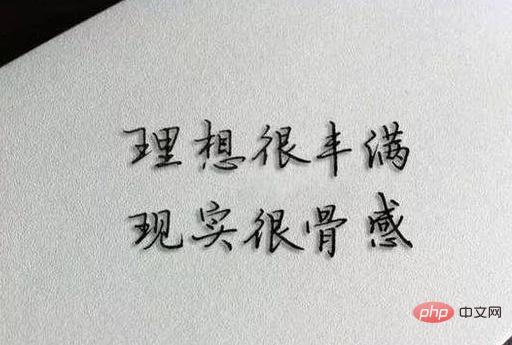 理想很丰满
现实很骨感
php 中文网